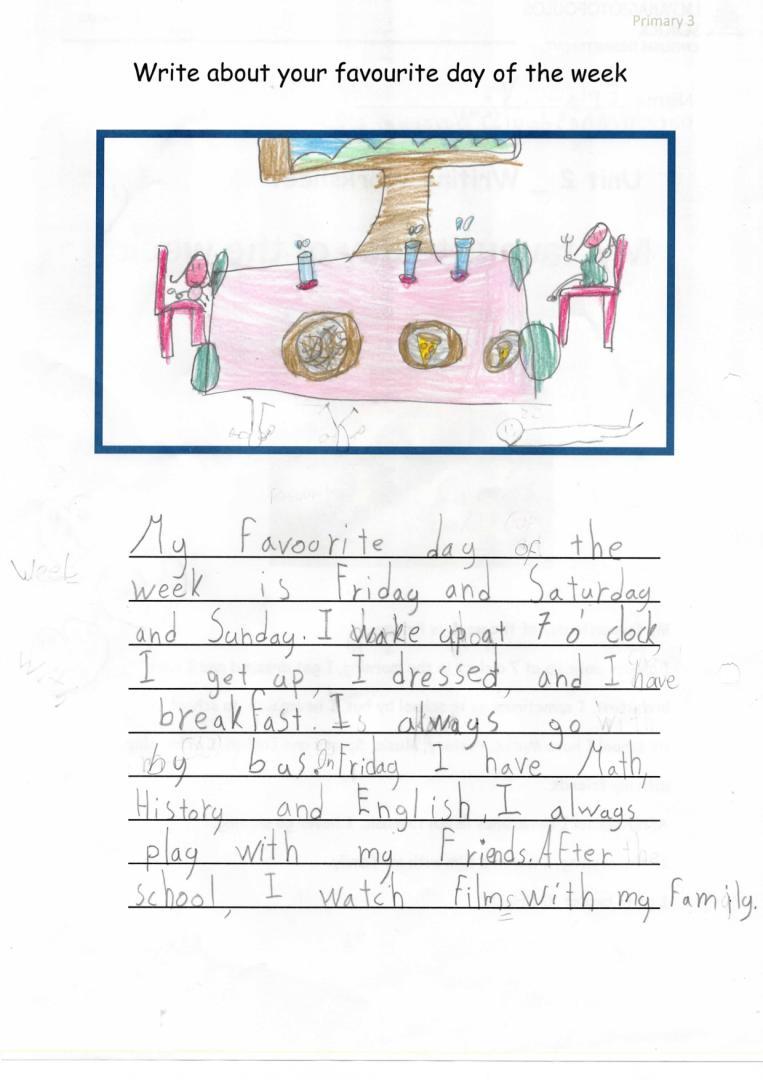 Primary 3
Write about your favourite day of the week
My Favourite day of the
week is Friday and Saturday
and Sunday. I wake up at 7 o'clock,
I get up, I dressed, and I have
breakfast. I always go
by bus. On Friday I have Math,
History and English, I always
play with my Friends. After
school, I watch films with my family.
Week